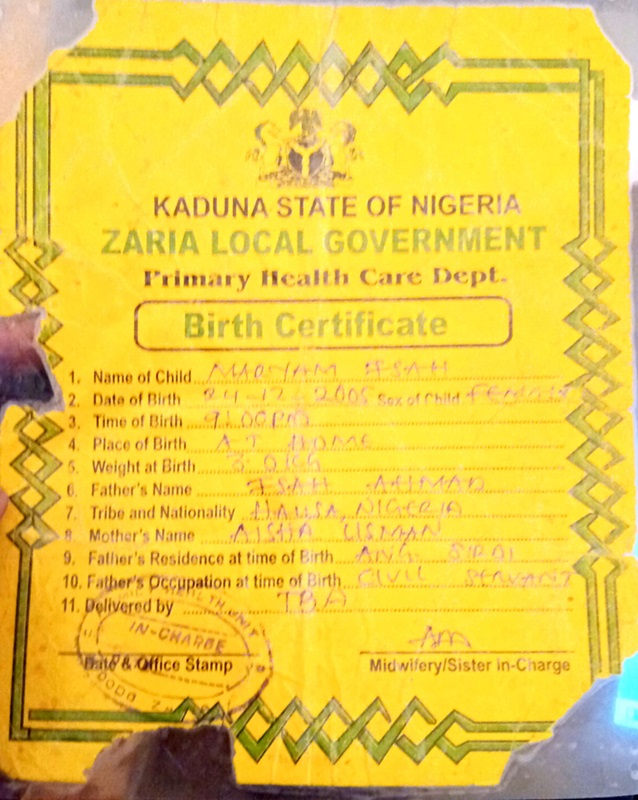 KADUNA STATE OF NIGERIA
ZARIA LOCAL GOVERNMENT
Primary Health Care Dept.
Birth Certificate
1. Name of Child MARYAM ISAH
2. Date of Birth 24-12-2005 Sex of Child FEMALE
3. Time of Birth 9:00PM
4. Place of Birth AT HOME
5. Weight at Birth 3.0KG
6. Father's Name ISAH AHMAD
7. Tribe and Nationality HAUSA, NIGERIA
8. Mother's Name AISHA USMAN
9. Father's Residence at time of Birth ANG.
10. Father's Occupation at time of Birth CIVIL SERVANT
11. Delivered by TBA
HEALTH UNIT
IN-CHARGE
Date & Office Stamp Midwifery/Sister in-Charge